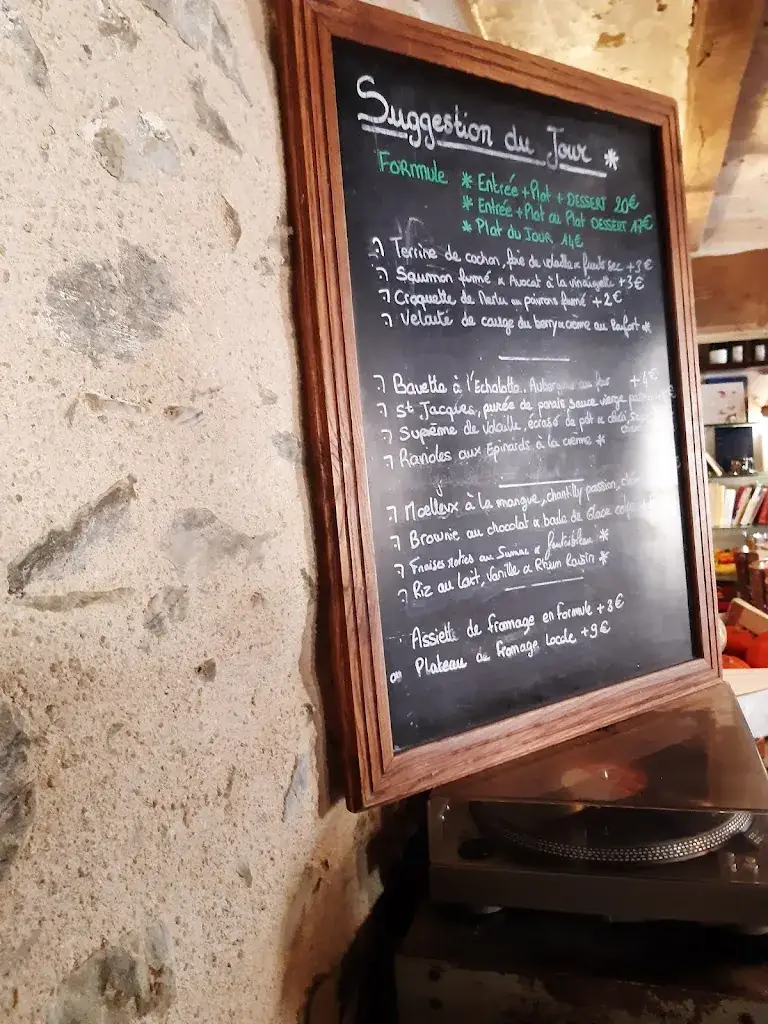 Suggestion du Jour *
FORMULE * Entrée + Plat + DESSERT 20€
* Entrée + Plat ou Plat DESSERT 17€
* Plat du JOUR 14€
Terrine de cochon, foie de volaille & fruits sec +3€
Saumon fumé & Avocat à la vinaigrette +3€
Croquette de Merlu au poivrons fumé +2€
Velouté de courge du berry & crème au Beaufort *
Bavette à l'Echalotte. Aubergine au four +4€
St Jacques, purée de panais sauce vierge
Suprême de Volaille, écrasé de pdt &
Ravioles aux Epinards à la crème *
Moelleux à la mangue, chantilly passion,
Brownie au chocolat & boule de Glace
Fraises roties au Sumac &
Riz au Lait, Vanille & Rhum Raisin *
Assiette de fromage en formule +3€
ou Plateau de fromage Locale +9€